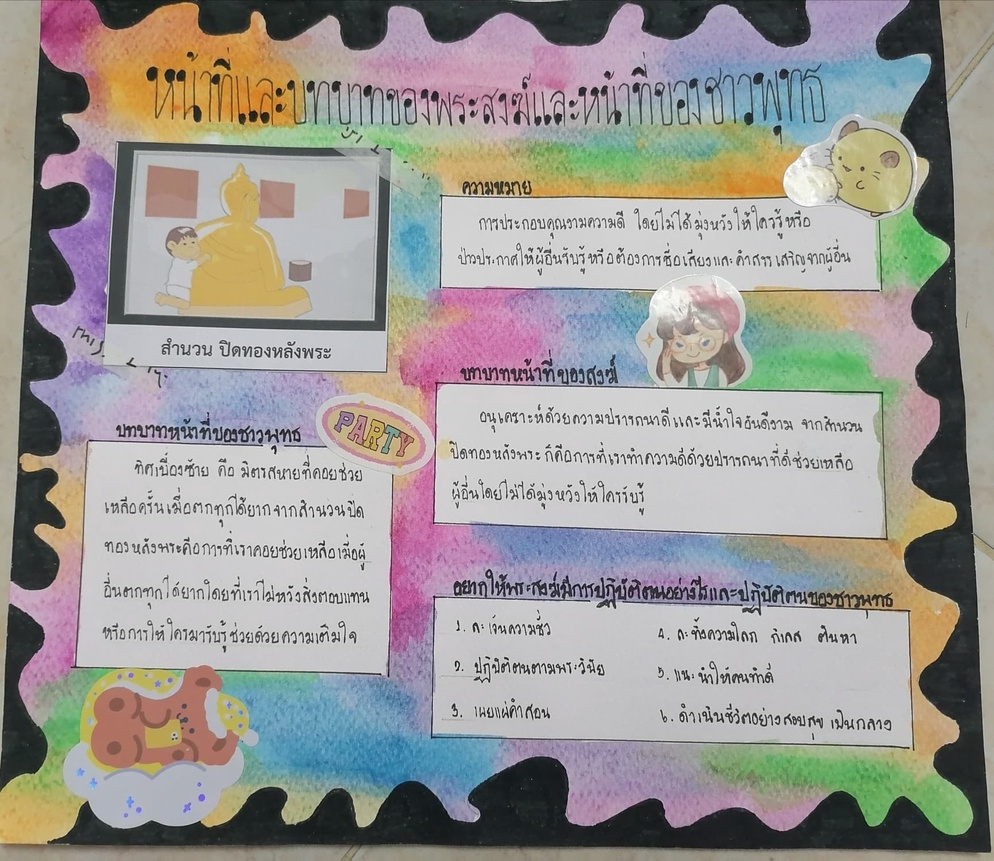 หน้าที่และบทบาทของพระสงฆ์และหน้าที่ของชาวพุทธ
สำนวน ปิดทองหลังพระ
ความหมาย
การประกอบคุณงามความดี โดยไม่ได้มุ่งหวังให้ใครรู้หรือ
ป่าวประกาศให้ผู้อื่นรับรู้หรือต้องการชื่อเสียงและคำสรรเสริญจากผู้อื่น
บทบาทหน้าที่ของสงฆ์
อนุเคราะห์ด้วยความปรารถนาดีและมีน้ำใจอันดีงาม จากสำนวน
ปิดทองหลังพระ ก็คือการที่เราทำความดีด้วยปรารถนาที่ดีช่วยเหลือ
ผู้อื่นโดยไม่ได้มุ่งหวังให้ใครรับรู้
บทบาทหน้าที่ของชาวพุทธ
PARTY
ทิศเบื้องซ้าย คือ มิตรสหายที่คอยช่วย
เหลือครั้นเมื่อตกทุกได้ยากจากสำนวนปิด
ทองหลังพระคือการที่เราคอยช่วยเหลือเมื่อผู้
อื่นตกทุกได้ยากโดยที่เราไม่หวังสิ่งตอบแทน
หรือการให้ใครมารับรู้ช่วยด้วยความเต็มใจ
อยากให้พระสงฆ์มีการปฏิบัติตนอย่างไรและปฏิบัติตนของชาวพุทธ
1. ละเว้นความชั่ว
2. ปฏิบัติตนตามพระวินัย
3. เผยแผ่คำสอน
4. ละทิ้งความโลภ กิเลส ตันหา
5. แนะนำให้คนทำดี
6. ดำเนินชีวิตอย่างสงบสุข เป็นกลาง